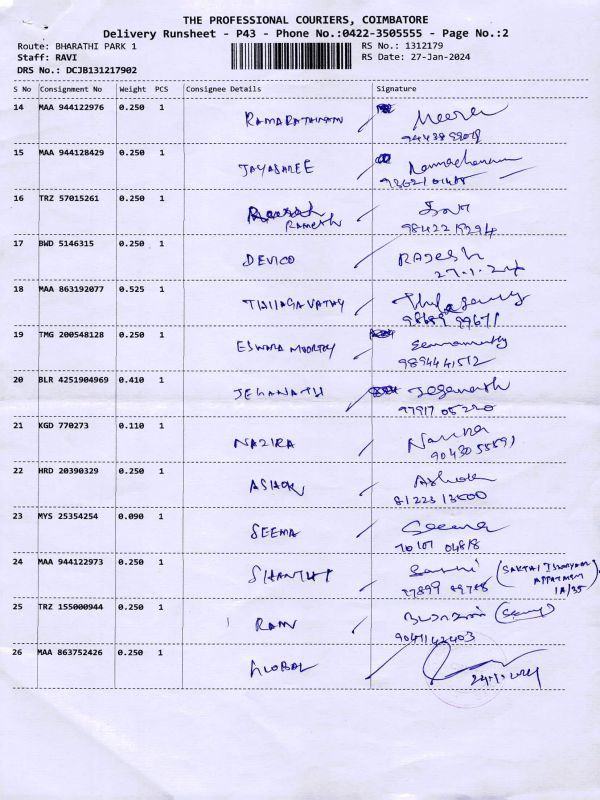 THE PROFESSIONAL COURIERS, COIMBATORE
Delivery Runsheet - P43 - Phone No.:0422-3505555 - Page No.:2
Route: BHARATHI PARK 1 RS No.: 1312179
Staff: RAVI RS Date: 27-Jan-2024
DRS No.: DCJB131217902
S No Consignment No Weight PCS Consignee Details Signature
14 MAA 944122976 0.250 1 RAMARATHINAM Meera
15 MAA 944128429 0.250 1 JAYASHREE
16 TRZ 57015261 0.250 1 RAMESH
9842219294
17 BWD 5146315 0.250 1 DEVICO RAJESH
27.1.24
18 MAA 863192077 0.525 1
98689 99671
19 TMG 200548128 0.250 1 ESWARA MOORTHY
9894441512
20 BLR 4251904969 0.410 1 JEGANATH Jeganath
97917 05220
21 KGD 770273 0.110 1 NAZIRA
90430 55891
22 HRD 20390329 0.250 1 ASHOK Ashok
81223 13500
23 MYS 25354254 0.090 1 SEEMA Seema
24 MAA 944122973 0.250 1 SHANTHI
1A/35
25 TRZ 155000944 0.250 1 RAM
9041142403
26 MAA 863752426 0.250 1 GLOBAL